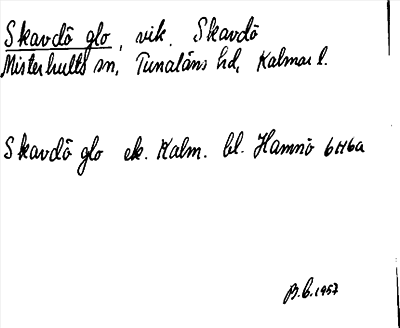 Skavdö glo, vik. Skavdö
Misterhults sn, Tunaläns hd, Kalmar l.
Skavdö glo ek. Kalm. bl. Hamnö 6H6a
B.C. 1957